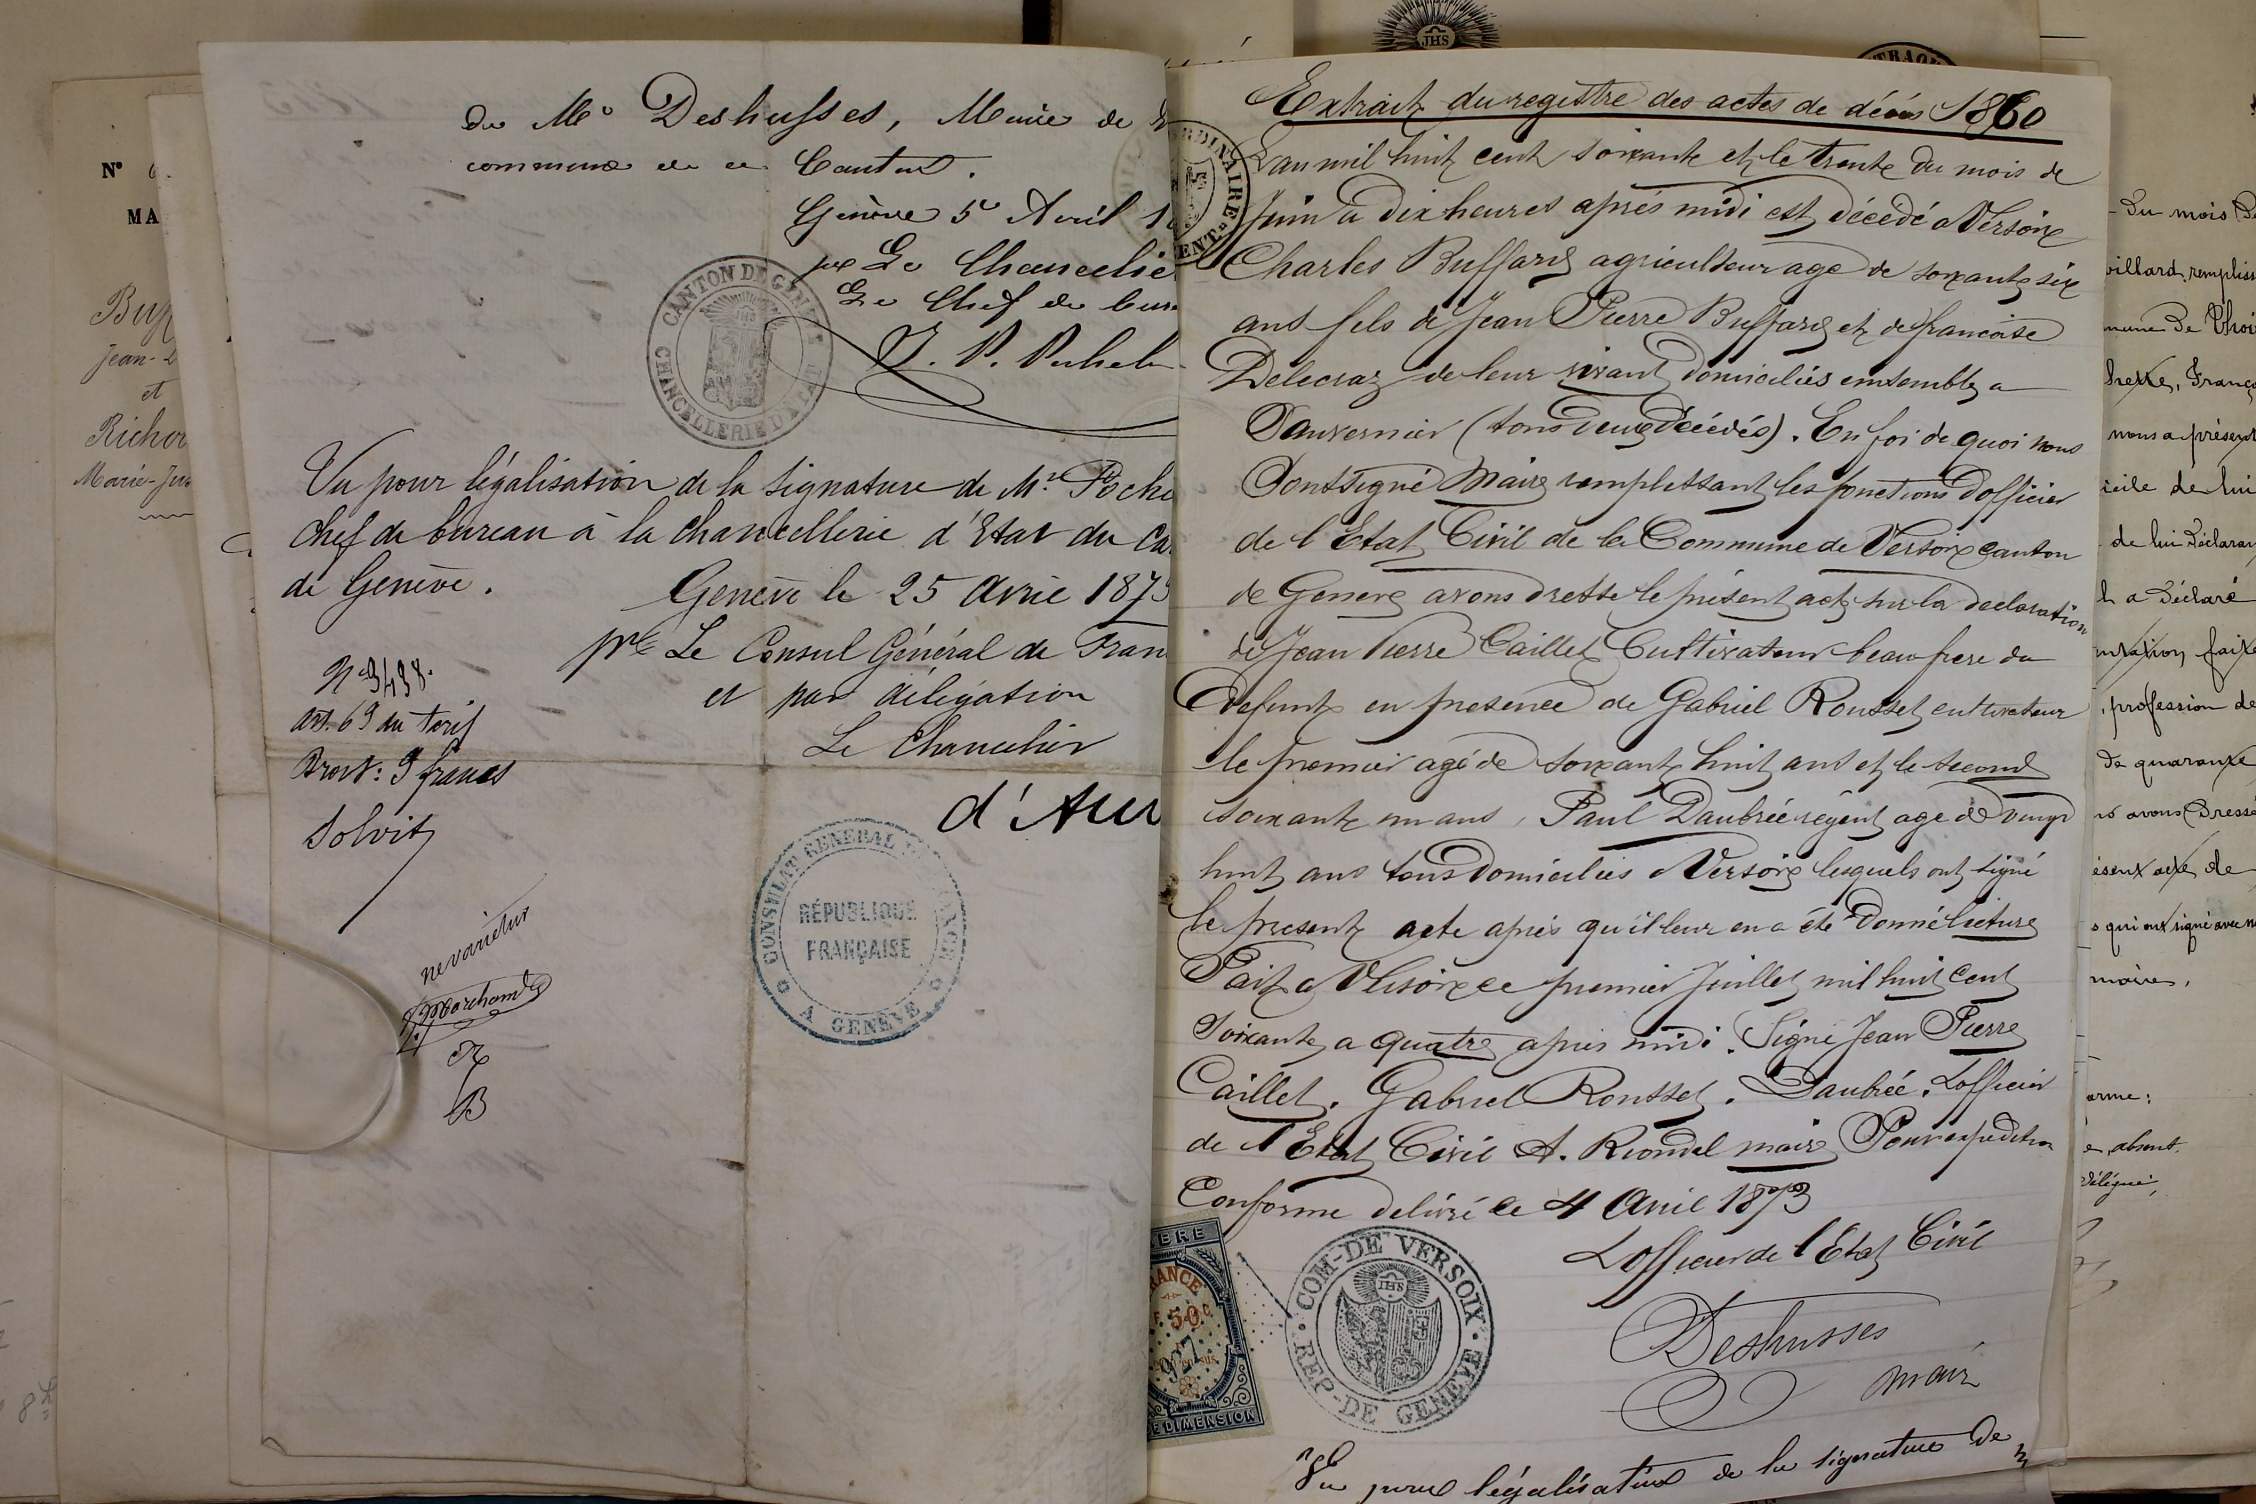 du Mr Deshusses, Maire de
commune de ce Canton.
Genève 5 Avril 18
pr Le Chancelier
Le Chef de bureau
CANTON DE GENÈVE
CHANCELLERIE D'ETAT
Vu pour légalisation de la signature de Mr
chef de bureau à la chancellerie d'Etat du Ca
de Genève.
Genève le 25 avril 1873
pr Le Consul Général de Fran
et par délégation
Le Chancelier
d'Au
No 3438.
art. 69 du tarif
Droit: 9 francs
Solvit
CONSULAT GENERAL DE FRANCE
A GENÈVE
RÉPUBLIQUE
FRANÇAISE
ne varietur
Marchand
B
Extrait du registre des actes de décès 1860
L'an mil huit cent soixante et le trente du mois de
Juin a dix heures après midi est décedé a Versoix
Charles Buffard agriculteur agé de soixante six
ans fils de Jean Pierre Buffard et de francoise
Delecraz de leur vivant domiciliés ensemble a
Sauvernier (tous deux décédés). En foi de quoi nous
Soussigné Maire remplissant les fonctions d'officier
de l'Etat Civil de la Commune de Versoix canton
de Geneve avons dressé le présent acte sur la declaration
de Jean Pierre Caillet Cultivateur beau frere du
defunt en presence de Gabriel Rousset cultivateur
le premier agé de soixante huit ans et le second
soixante un ans, Paul Daubrée régent agé de vingt
huit ans tous domiciliés a Versoix lesquels ont signé
le present acte après qu'il leur en a été donné lecture
Fait a Versoix ce premier Juillet mil huit cent
Soixante a quatre après midi. Signé Jean Pierre
Caillet. Gabriel Rousset. Daubrée. L'officier
de l'Etat Civil A. Riondel maire Pour expedition
Conforme delivré le 4 Avril 1873
L'officier de l'Etat Civil
Deshusses
maire
COM-DE VERSOIX
REP-DE GENEVE
JHS
RANCE
50 C.
DIMENSION
Vu pour légalisation de la signature de
JHS
N°
MA
Buf
Jean-
et
Richar
Marie-
du mois de
villard, rempliss
nous a présent
de lui déclaran
a déclaré
faite
, profession de
de quarante
avons dressé
acte de
qui ont signé avec n
maire,
orme:
absent.
délégué,